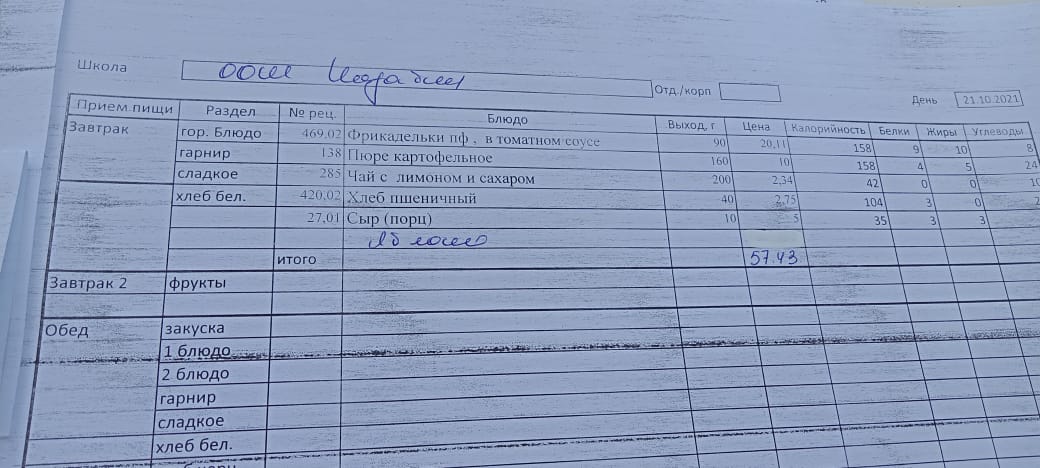 Школа ООШ
Отд./корп
День 21.10.2021
Прием пищи Раздел № рец. Блюдо Выход, г Цена Калорийность Белки Жиры Углеводы
Завтрак гор. Блюдо 469,02 Фрикадельки пф , в томатном соусе 90 20,11 158 9 10 8
гарнир 138 Пюре картофельное 160 10 158 4 5 24
сладкое 285 Чай с лимоном и сахаром 200 2,34 42 0 0 10
хлеб бел. 420,02 Хлеб пшеничный 40 2,75 104 3 0
27,01 Сыр (порц) 10 5 35 3 3
Яблоко
итого 57.43
Завтрак 2 фрукты
Обед закуска
1 блюдо
2 блюдо
гарнир
сладкое
хлеб бел.